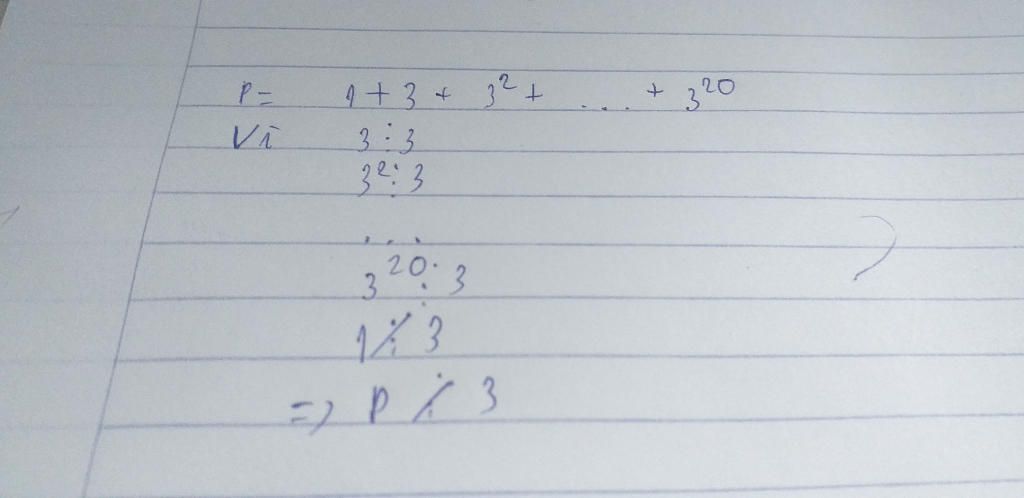 P = 1 + 3 + 3² + ... + 3²⁰
Vì 3 ⋮ 3
3² ⋮ 3
...
3²⁰ ⋮ 3
1 ⋮̸ 3
=> P ⋮̸ 3